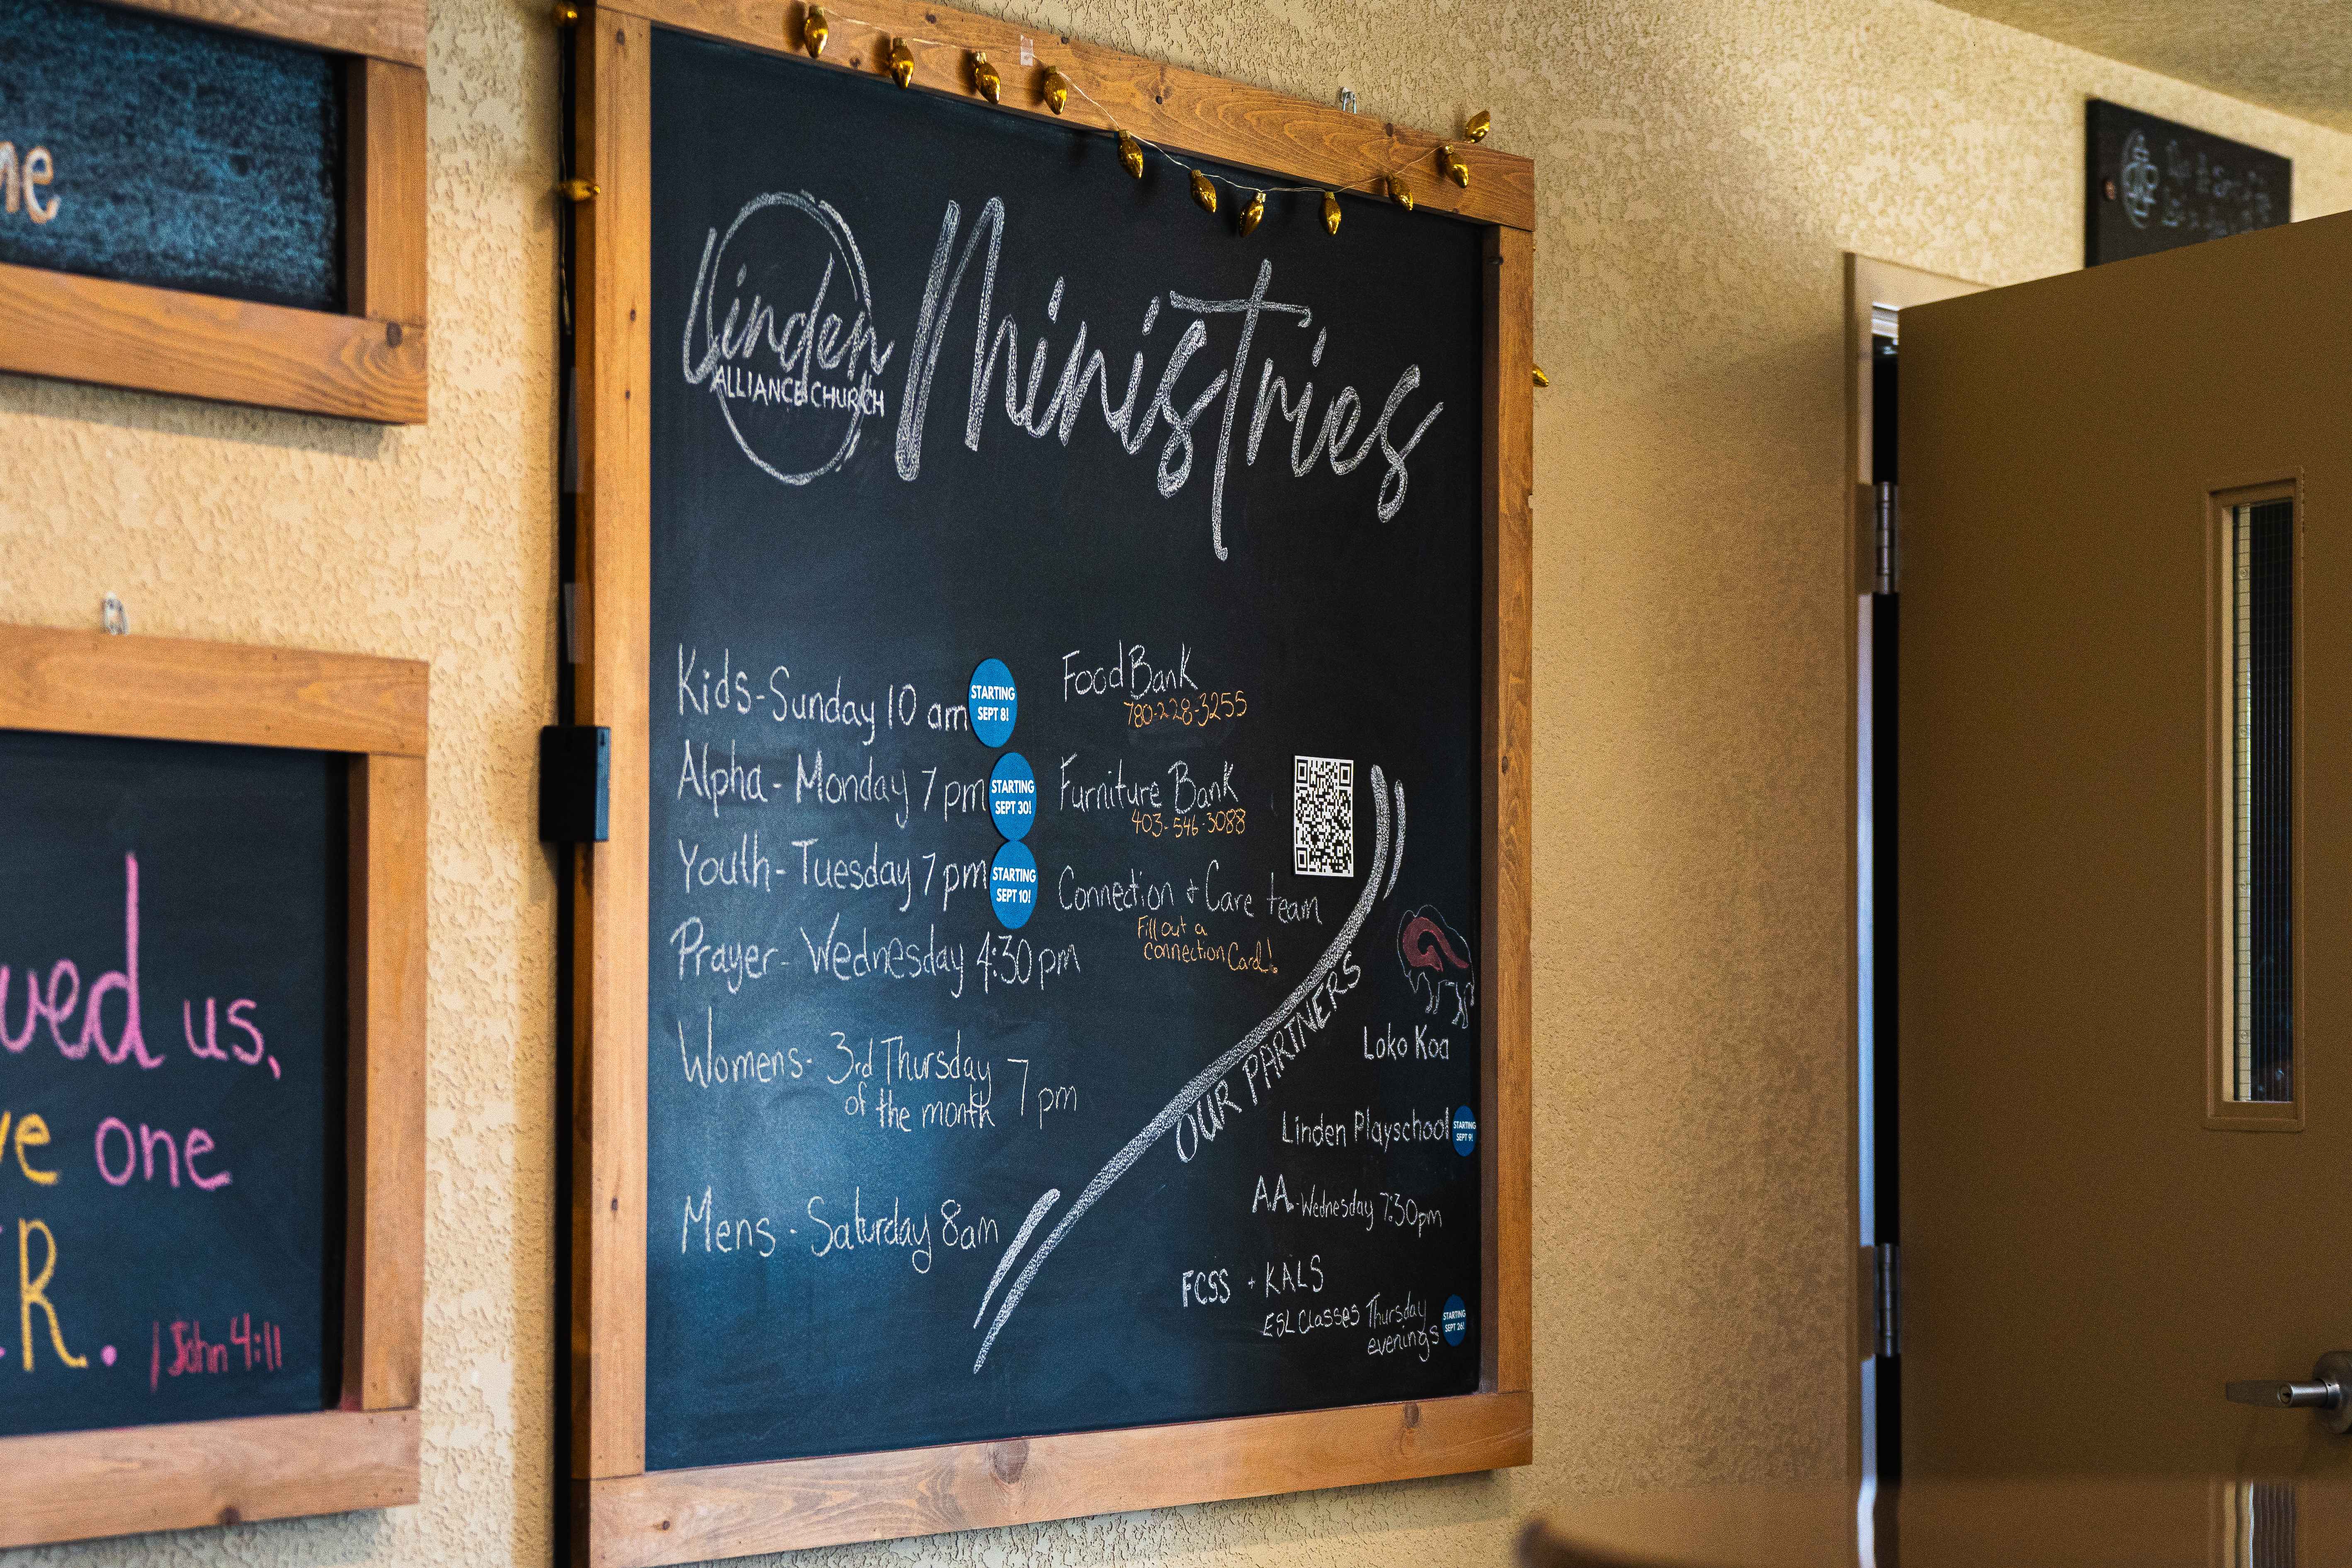 me
ved us,
ve one
ER.
1 John 4:11
Linden
ALLIANCE CHURCH
Ministries
Kids-Sunday 10 am
STARTING
SEPT 8!
Alpha- Monday 7 pm
STARTING
SEPT 30!
Youth- Tuesday 7 pm
STARTING
SEPT 10!
Prayer- Wednesday 4:30pm
Womens- 3rd Thursday
of the month 7 pm
Mens - Saturday 8am
Food Bank
780-228-3255
Furniture Bank
403-546-3088
Connection + Care team
Fill out a
connection Card!
OUR PARTNERS
Loko Koa
Linden Playschool
STARTING
SEPT 9!
AA-Wednesday 7:30pm
FCSS + KALS
ESL Classes Thursday
evenings
STARTING
SEPT 26!